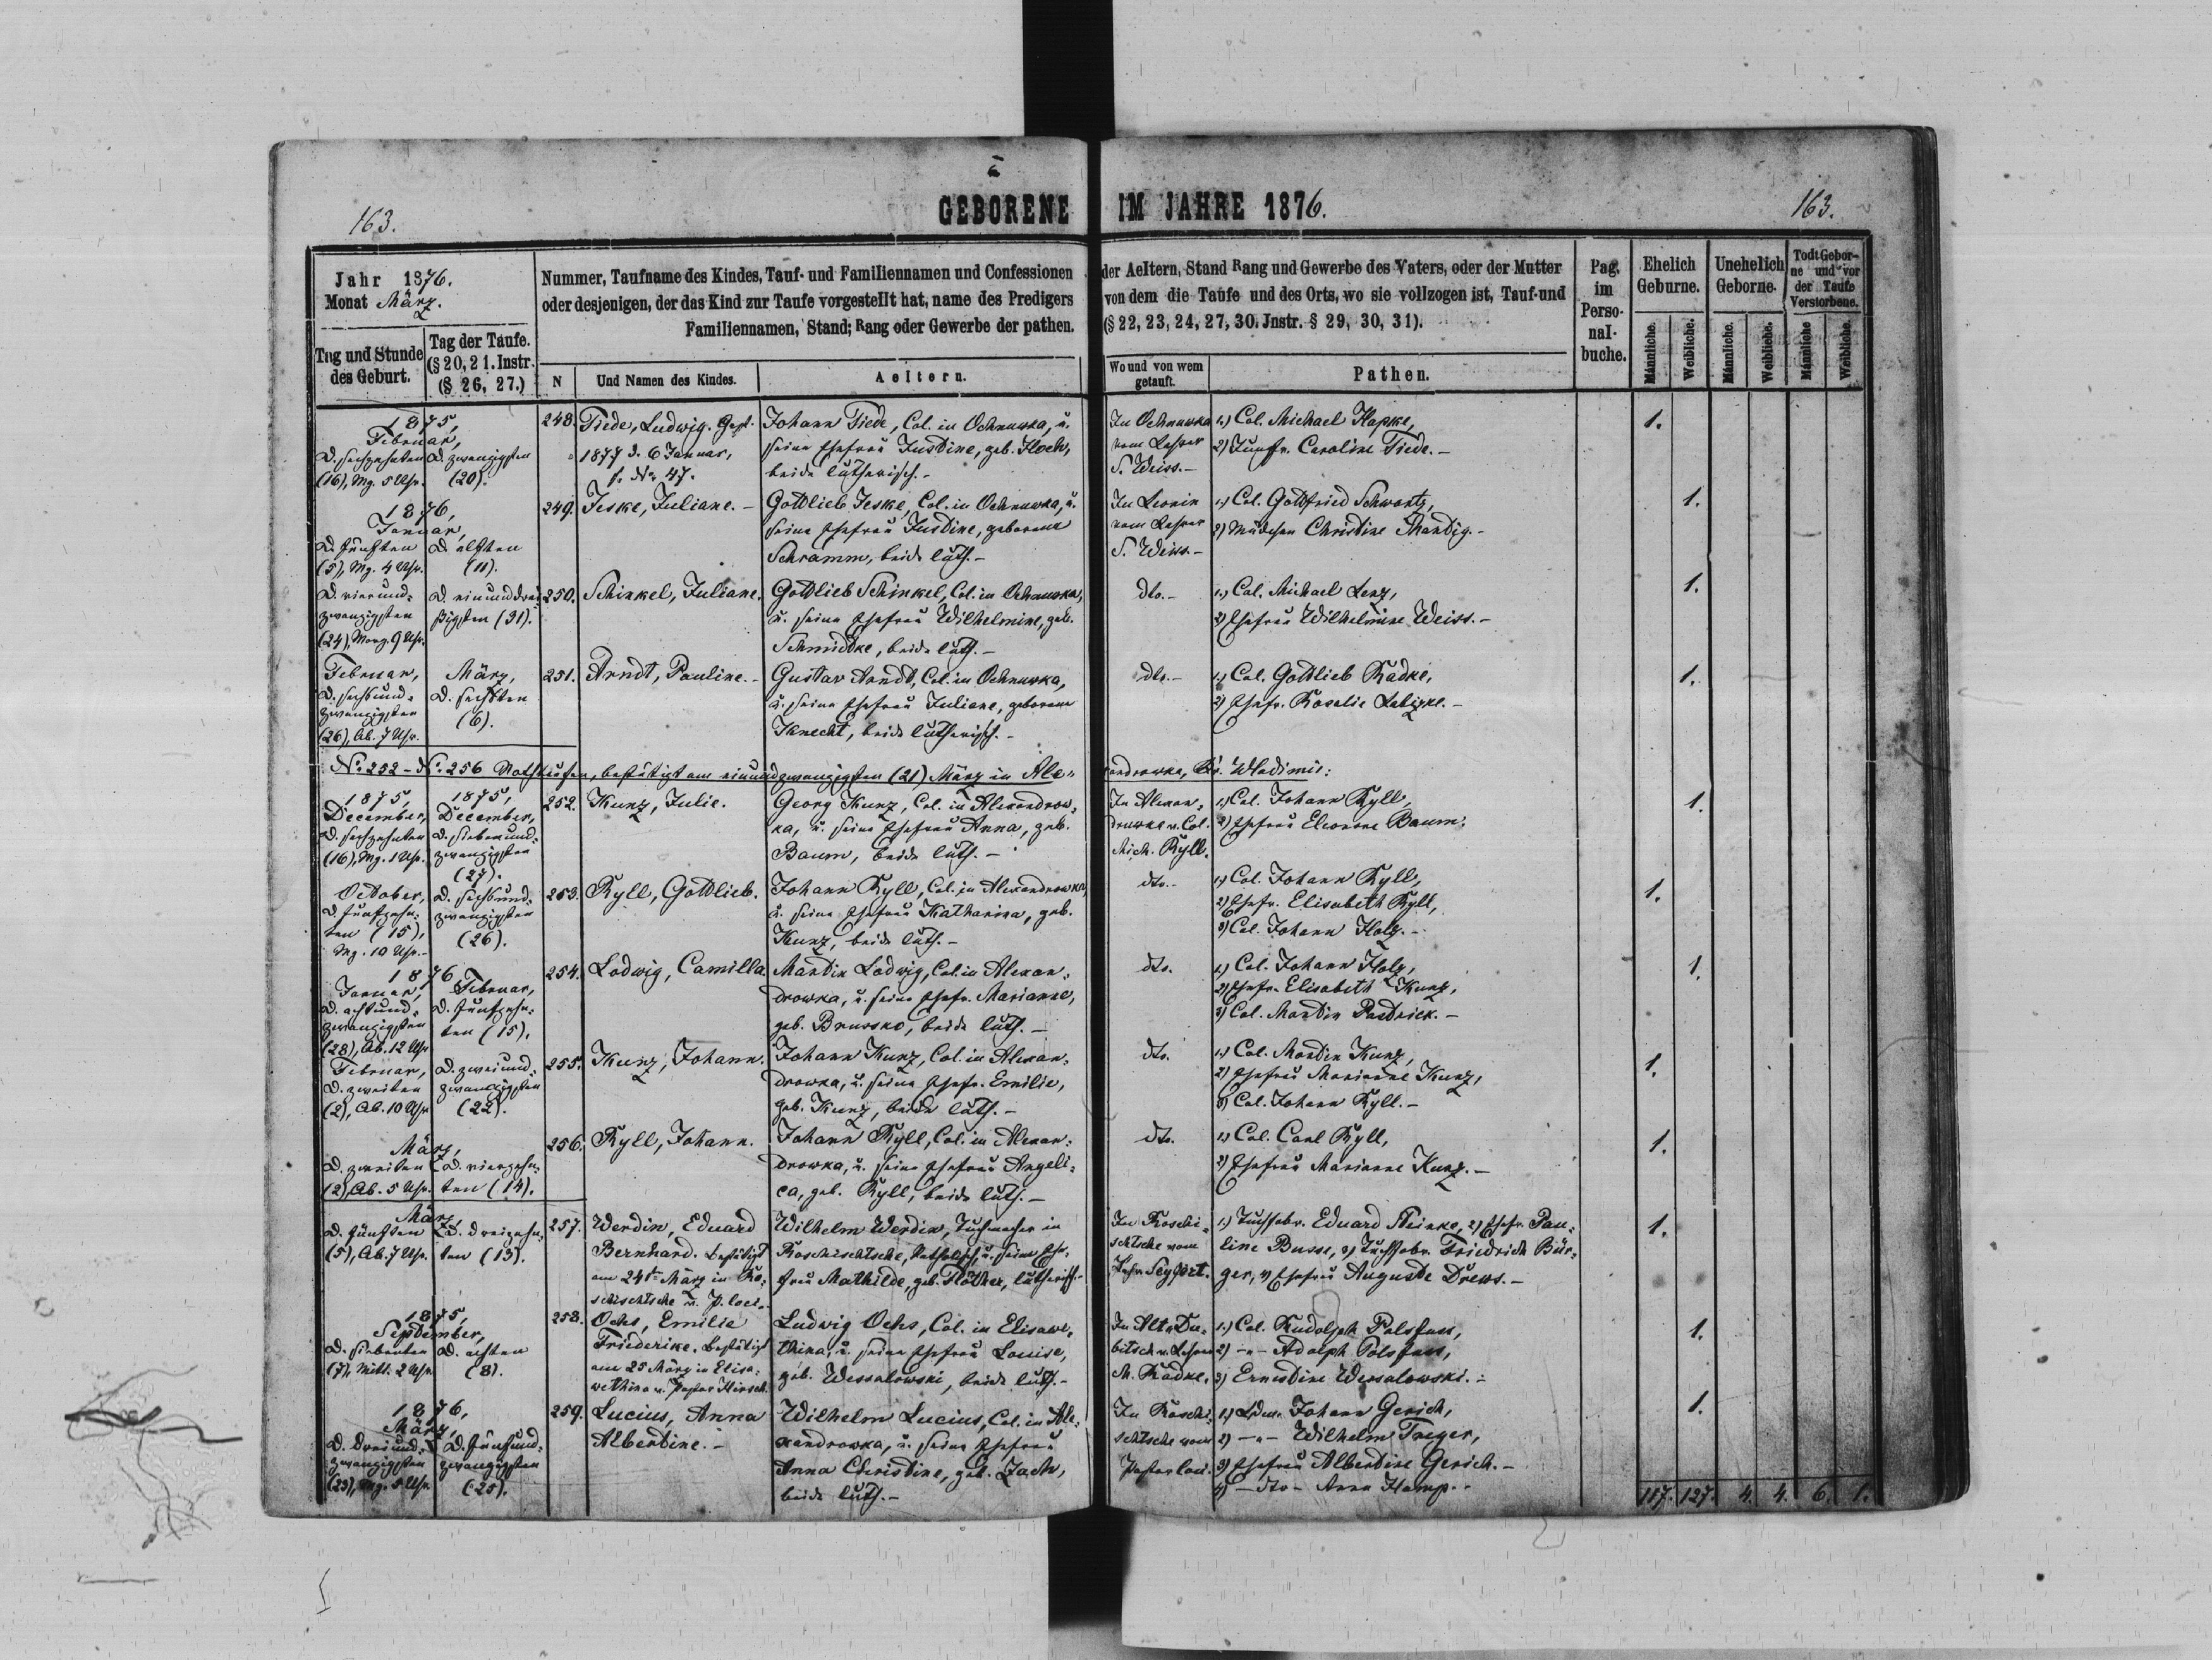 163.
GEBORENE IM JAHRE 1876.
163.
Jahr 1876.
Monat März.
Tag und Stunde des Geburt.
Tag der Taufe.
(§ 20, 21. Instr.
(§ 26, 27.)
Nummer, Taufname des Kindes, Tauf- und Familiennamen und Confessionen der Aeltern, Stand Rang und Gewerbe des Vaters, oder der Mutter
oder desjenigen, der das Kind zur Taufe vorgestellt hat, name des Predigers von dem die Taufe und des Orts, wo sie vollzogen ist, Tauf-und
Familiennamen, Stand; Rang oder Gewerbe der pathen. (§ 22, 23, 24, 27, 30. Jnstr. § 29, 30, 31).
N
Und Namen des Kindes.
Aeltern.
Wo und von wem getauft.
Pathen.
Pag. im Perso- nal- buche.
Ehelich Geburne.
Unehelich Geborne.
Todt Gebor- ne und vor der Taufe Verstorbene.
Männliche. Weibliche. Männliche. Weibliche. Männliche Weibliche.
1875,
Februar,
D. sechzehnten D. zwanzigsten
(16), Mg. 5 Uhr. (20).
248.
Tiede, Ludwig. Gest.
1877 d. 6 Januar,
s. No. 47.
Johann Tiede, Col. in Ochnuwka, u.
seine Ehefrau Justine, geb. Hoch,
beide lutherisch.-
In Ochnuwka
vom Lehrer
S. Weiss.-
1.) Col. Michael Hapke,
2) Jungfr. Caroline Tiede.-
1.
1876,
Januar,
D. fünften D. elften
(5), Mg. 4 Uhr. (11).
249.
Jeske, Juliane.-
Gottlieb Jeske, Col. in Ochnuwka, u.
seine Ehefrau Justine, geborene
Schramm, beide luth.-
In Leonin
vom Lehrer
S. Weiss.-
1.) Col. Gottfried Schwartz,
2) Mädchen Christine
1.
D. vierund-
zwanzigsten
(24), Morg. 9 Uhr.
D. einunddrei-
ßigsten (31).
250.
Schinkel, Juliane.
Gottlieb Schinkel, Col. in Ochnuwka,
u. seine Ehefrau Wilhelmine, geb.
Schmidtke, beide luth.-
dto.-
1.) Col. Michael Lenz,
2) Ehefrau Wilhelmine Weiss.-
1.
Februar,
D. sechsund-
zwanzigsten
(26), Ab. 7 Uhr.
März,
D. sechsten
(6).
251.
Arndt, Pauline.-
Gustav Arndt, Col. in Ochnuwka,
u. seine Ehefrau Juliane, geborene
Knecht, beide lutherisch.-
dto.-
1.) Col. Gottlieb Radke,
2) Ehefr. Rosalie
1.
No. 252 - No. 256 Nothtaufen, bestätigt am einundzwanzigsten (21) März in Ale- xandrowka, Kr. Wladimir:
1875,
December,
D. sechzehnten
(16), Mg. 1 Uhr.
1875,
December,
D. siebenund-
zwanzigsten
(27).
252.
Kunz, Julie.
Georg Kunz, Col. in Alexandrow-
ka, u. seine Ehefrau Anna, geb.
Baum, beide luth.-
In Alexan-
drowka v. Col.
Mich. Ryll.
1.) Col. Johann Ryll,
2) Ehefrau Eleonore Baum.
1.
October,
D. fünfzehn-
ten (15),
Mg. 10 Uhr.-
D. sechsund-
zwanzigsten
(26).
253.
Ryll, Gottlieb.
Johann Ryll, Col. in Alexandrowka,
u. seine Ehefrau Katharina, geb.
Kunz, beide luth.-
dto.-
1.) Col. Johann Ryll,
2) Ehefr. Elisabeth Ryll,
3) Col. Johann Holz.-
1.
1876
Januar,
D. achtund-
zwanzigsten
(28), Ab. 12 Uhr
Februar,
D. fünfzehn-
ten (15).
254.
Ladwig, Camilla.
Martin Ladwig, Col. in Alexan-
drowka, u. seine Ehefr. Marianne,
geb. Brussko, beide luth.-
dto.
1.) Col. Johann Holz,
2) Ehefr. Elisabeth Kunz,
3) Col. Martin Pastrick.-
1.
Februar,
D. zweiten
(2), Ab. 10 Uhr
D. zweiund-
zwanzigsten
(22).
255.
Kunz, Johann.
Johann Kunz, Col. in Alexan-
drowka, u. seine Ehefr. Emilie,
geb. Kunz, beide luth.-
dto.
1.) Col. Martin Kunz,
2) Ehefrau Marianne Kunz,
3) Col. Johann Ryll.-
1.
März,
D. zweiten D. vierzehn-
(2), Ab. 5 Uhr. ten (14).
256.
Ryll, Johann.
Johann Ryll, Col. in Alexan-
drowka, u. seine Ehefrau Angeli-
ca, geb. Ryll, beide luth.-
dto.
1.) Col. Carl Ryll,
2) Ehefrau Marianne Kunz.-
1.
März,
D. fünften D. dreizehn-
(5), Ab. 7 Uhr. ten (13).
257.
Werdin, Eduard
Bernhard. Bestätigt
am 24ten März in Ro-
schischtsche v. P. loci.
Wilhelm Werdin, Tuchmacher in
Roschischtsche, katholisch, u. seine Ehe-
frau Mathilde, geb. Flöther, lutherisch.-
In Roschi-
schtsche vom
Lehr. Seyfert.
1.) Tuchfabr. Eduard Steinke, 2) Ehefr. Pau-
line Busse, 3) Tuchfabr. Friedrich Bür-
ger, 4) Ehefrau Auguste Drews.-
1.
1875,
September,
D. siebenten D. achten
(7), Mitt. 2 Uhr. (8).
258.
Ochs, Emilie
Friederike. Bestätigt
am 25 März in Elisa-
wethina v. Pastor Hirsch.
Ludwig Ochs, Col. in Elisawe-
thina, u. seine Ehefrau Louise,
geb. Wessalowski, beide luth.-
In Alt-Du-
bitsch v. Lehrer
M. Radke.
1.) Col. Rudolph Polsfuss,
2) -"- Adolph Polsfuss,
3) Ernestine Wessalowski.-
1.
1876,
März,
D. dreiund-
zwanzigsten
(23), Mg. 5 Uhr
D. fünfund-
zwanzigsten
(25).
259.
Lucius, Anna
Albertine.-
Wilhelm Lucius, Col. in Ale-
xandrowka, u. seine Ehefrau
Anna Christine, geb. Zach,
beide luth.-
In Roschi-
schtsche vom
Pastor loci.
1.) Johann Gerich,
2) -"- Wilhelm Treger,
3) Ehefrau Albertine Gerich.-
4) -dto- Anna Hamp.-
1.
117. 127. 4. 4. 6. 1.